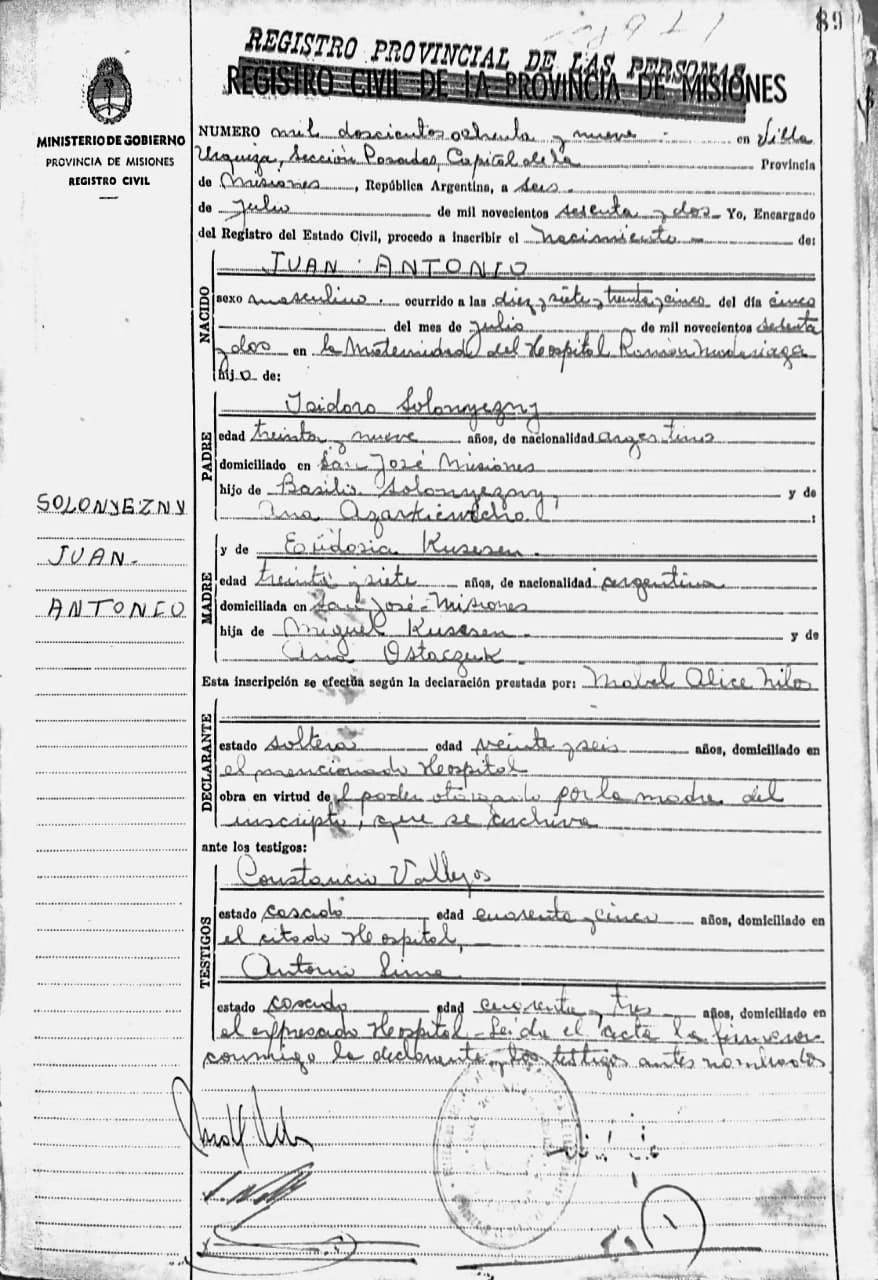 89
REGISTRO PROVINCIAL DE LAS PERSONAS
REGISTRO CIVIL DE LA PROVINCIA DE MISIONES
MINISTERIO DE GOBIERNO
PROVINCIA DE MISIONES
REGISTRO CIVIL
NUMERO mil doscientos ochenta y nueve en Villa
Urquiza, Sección Posadas, Capital de la Provincia
de Misiones, República Argentina, a seis
de julio de mil novecientos sesenta y dos Yo, Encargado
del Registro del Estado Civil, procedo a inscribir el nacimiento de:
NACIDO
JUAN ANTONIO
sexo masculino ocurrido a las diez y siete y treinta y cinco del día cinco
del mes de julio de mil novecientos sesenta
y dos en la Maternidad del Hospital Ramón Madariaga
hijo de:
PADRE
Isidoro Solonyezny
edad treinta y nueve años, de nacionalidad argentino
domiciliado en San José Misiones
hijo de Basilio Solonyezny y de
Ana
SOLONYEZNY
JUAN
ANTONIO
MADRE
y de Eudosia Kusesen
edad treinta y siete años, de nacionalidad argentina
domiciliada en San José-Misiones
hija de Miguel Kusesen y de
Ana Ostaczuk
Esta inscripción se efectúa según la declaración prestada por: Mabel Alice
DECLARANTE
estado soltera edad veinte y seis años, domiciliado en
el mencionado Hospital
obra en virtud de el poder otorgado por la madre del
inscripto, que se archiva
ante los testigos:
TESTIGOS
Constancio Vallejos
estado casado edad cuarenta y cinco años, domiciliado en
el citado Hospital,
Antonio
estado casado edad cuarenta y tres años, domiciliado en
el expresado Hospital - Leida el acta la firmaron
conmigo la declarante y los testigos antes nombrados